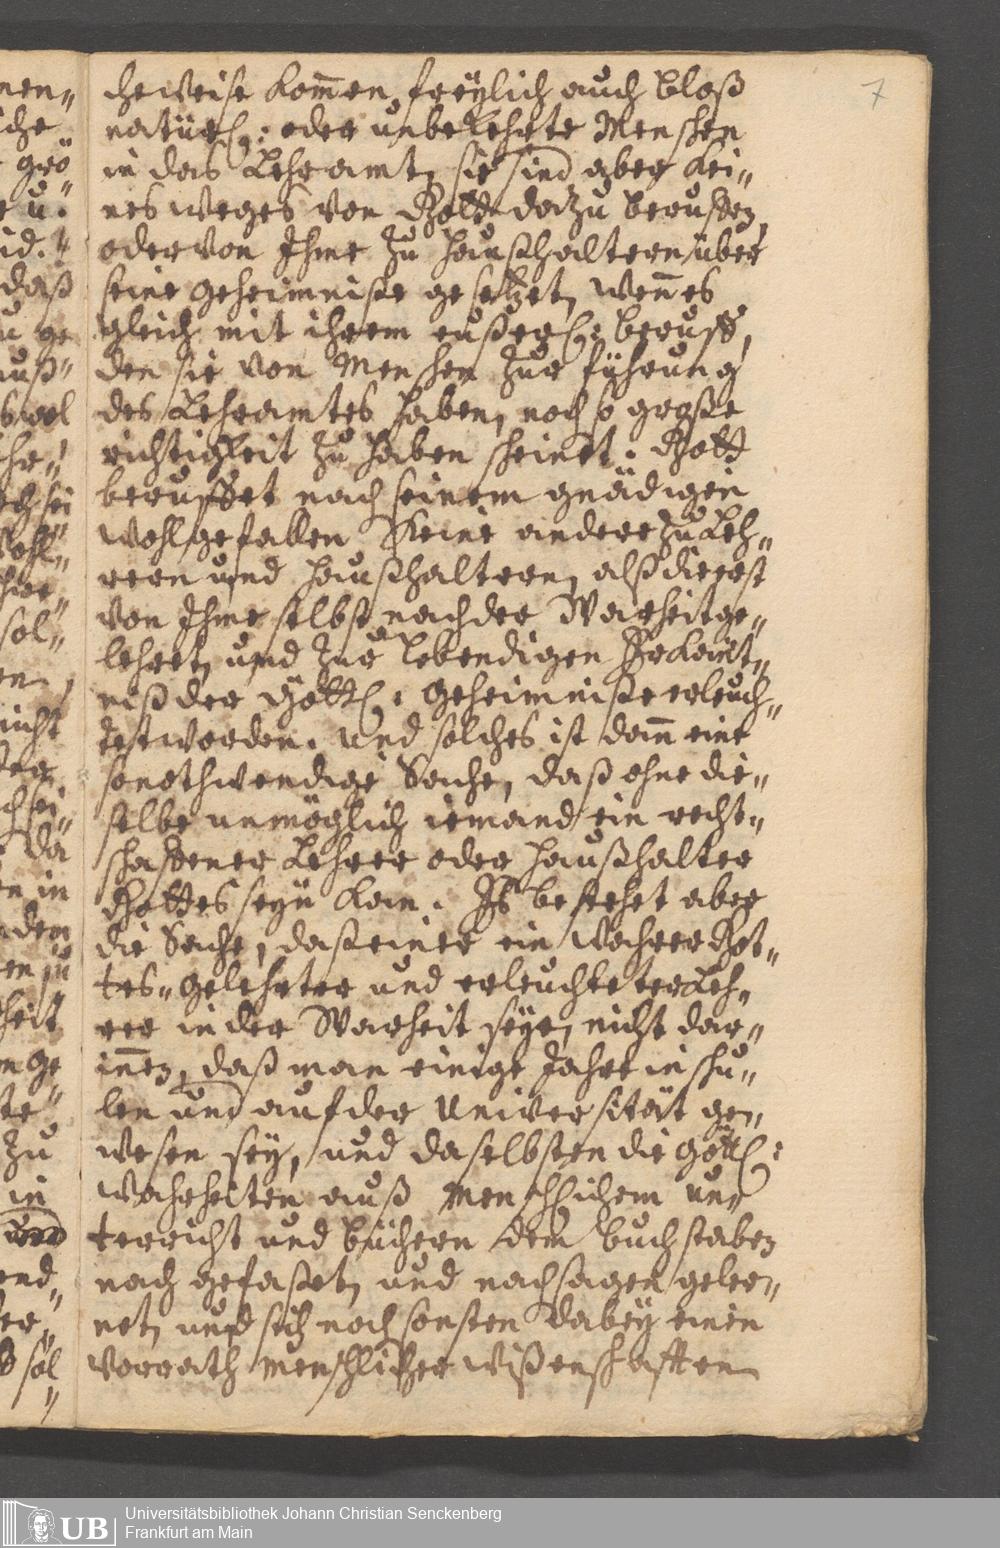 7
cheweise kom̄en freÿlich auch bloß
natürl: oder unbekehrte Menschen
in das Lehramt, sie sind aber kei„
nesweges von Gott dazu beruffen,
oder von Ihme zu haußhaltern über
seine geheimniße gesetzet, wen̄ es
gleich mit ihrem eußerl: beruff,
den sie von Menschen zur führung
des Lehramtes haben, noch so große
richtigkeit zu haben scheinet. Gott
beruffet nach seinem gnädigen
wohlgefallen keine andere zu Leh„
rern und haußhaltern, alß die erst
von Ihme selbst nach der Warheit ge„
lehret, und zur lebendigen Erkänt„
niß der göttl: geheimniße erleuch„
tet worden. Und solches ist dan̄ eine
so nothwendige Sache, daß ohne die„
selbe unmöglich iemand ein recht„
schaffener Lehrer oder haußhalter
Gottes seÿn kan. Es bestehet aber
die Sache, daß einer ein wahrer Got„
tes„gelehrter und erleuchteter Leh„
rer in der Warheit seÿe, nicht dar„
in̄en, daß man einige Jahre in schu„
len und auf der Universität ge„
wesen seÿ, und daselbsten die göttl:
wahrheiten auß menschlichem un„
terricht und büchern dem buchstaben
nach gefaßet, und nachsagen geler„
net, und sich noch sonsten dabeÿ einen
vorrath menschlicher wißenschafften
nen„
che
grö„
u.
id.
daß
u ge
auß„
wol
sol„
nicht
da
in
dem
heit
ge„
te„
zu
in
und
end„
er„
sol„
UB
Universitätsbibliothek Johann Christian Senckenberg
Frankfurt am Main